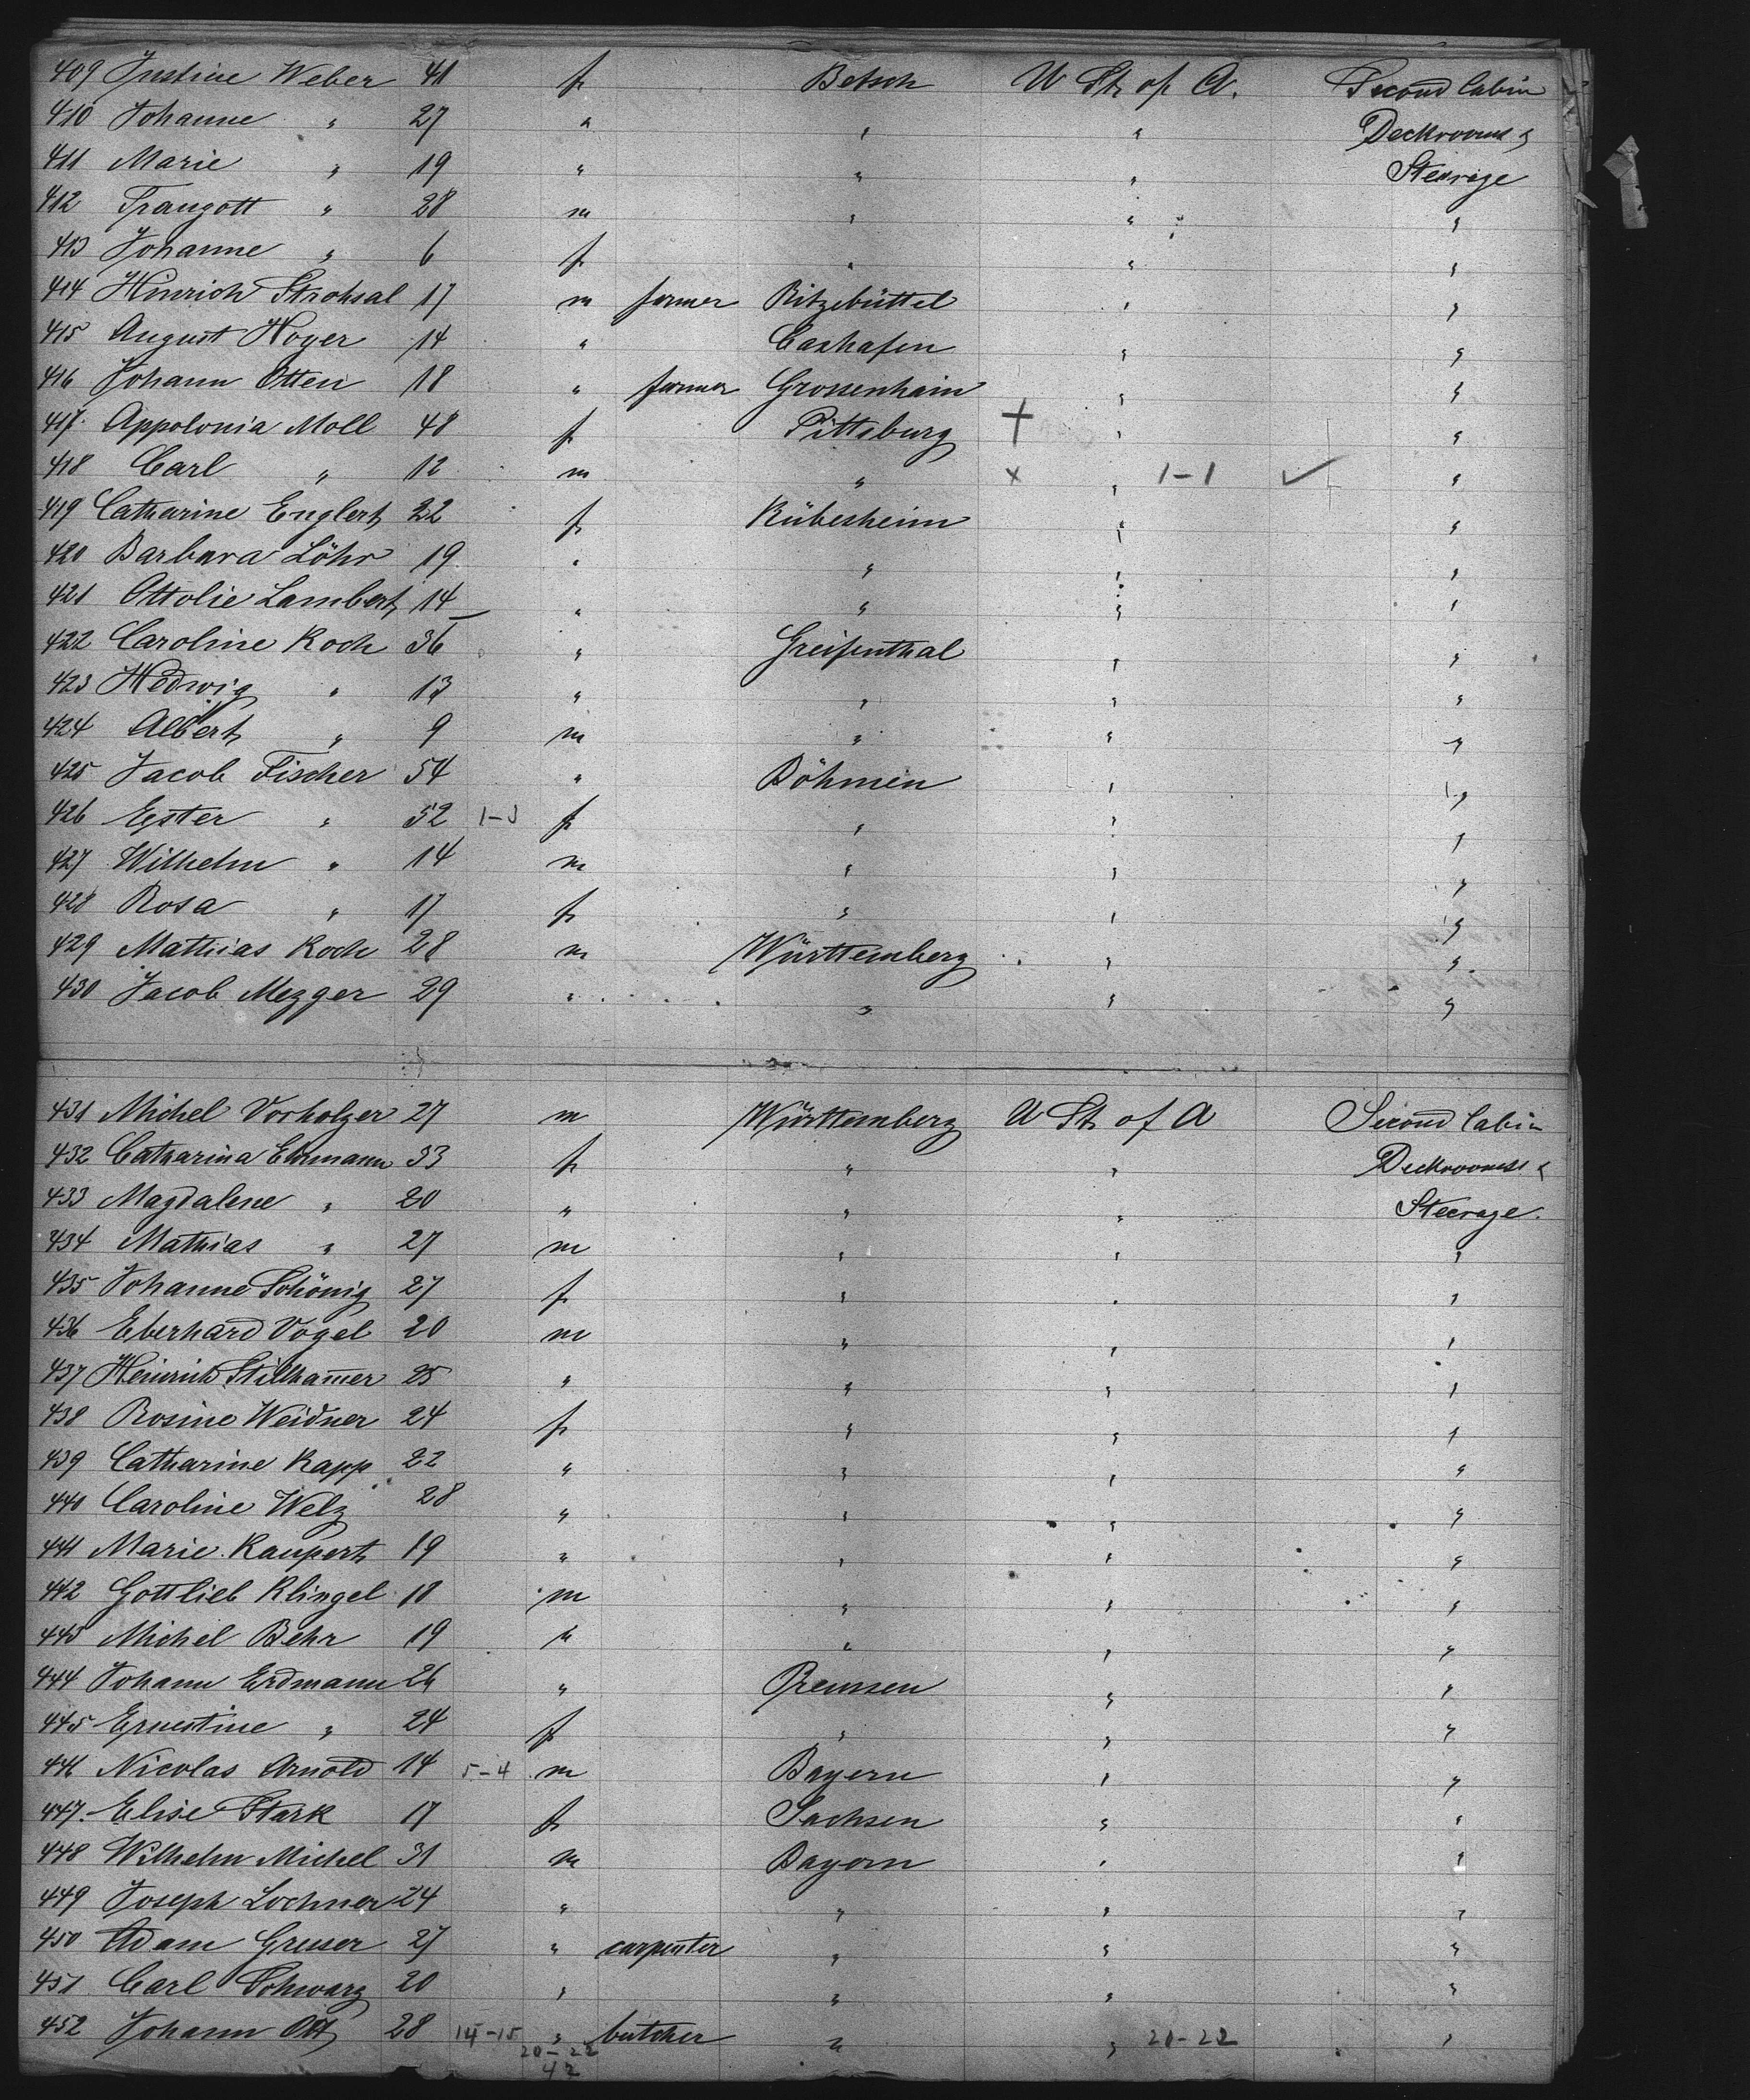 409 Justine Weber 41 f Betsch U St. of A. Second Cabin
410 Johanne " 27 " " " Deckrooms &
411 Marie " 19 " " " Steerage
412 Traugott " 28 m " " "
413 Johanne " 6 f " " "
414 Hinrich Strohsal 17 m farmer Ritzebüttel " "
415 August Hoyer 14 " Cuxhafen " "
416 Johann Otten 18 " farmer Grossenhain " "
417 Appolonia Moll 48 f Pittsburg + " "
418 Carl " 12 m " x " 1-1 ✓ "
419 Catharine Englert 22 f Rübesheim " "
420 Barbara Löhr 19 " " " "
421 Ottolie Lambert 14 " " " "
422 Caroline Koch 36 " Greifenthal " "
423 Hedwig " 13 " " " "
424 Albert " 9 m " " "
425 Jacob Fischer 54 " Böhmen " "
426 Ester " 52 1-3 f " " "
427 Wilhelm " 14 m " " "
428 Rosa " 17 f " " "
429 Mathias Koch 28 m Württemberg " "
430 Jacob Mezger 29 " " " "
431 Michel Vorholzer 27 m Württemberg U St. of A Second Cabin
432 Catharina Ehmann 33 f " " Deckrooms &
433 Magdalene " 20 " " " Steerage.
434 Mathias " 27 m " " "
435 Johanne Schönig 27 f " " "
436 Eberhard Vogel 20 m " " "
437 Heinrich Stillham̅er 25 " " " "
438 Rosine Weidner 24 f " " "
439 Catharine Kapp 22 " " " "
440 Caroline Welz 28 " " " "
441 Marie Kaupert 19 " " " "
442 Gottlieb Klingel 18 m " " "
443 Michel Behr 19 " " " "
444 Johann Erdmann 26 " Preussen " "
445 Ernestine " 24 f " " "
446 Nicolas Arnold 14 5-4 m Bayern " "
447 Elise Stark 17 f Sachsen " "
448 Wilhelm Michel 31 m Bayern " "
449 Joseph Lochner 24 " " " "
450 Adam Greser 27 " carpenter " " "
451 Carl Schwarz 20 " " " "
452 Johann Ott 28 14-15 " butcher " " 20-22 "
20-22
42